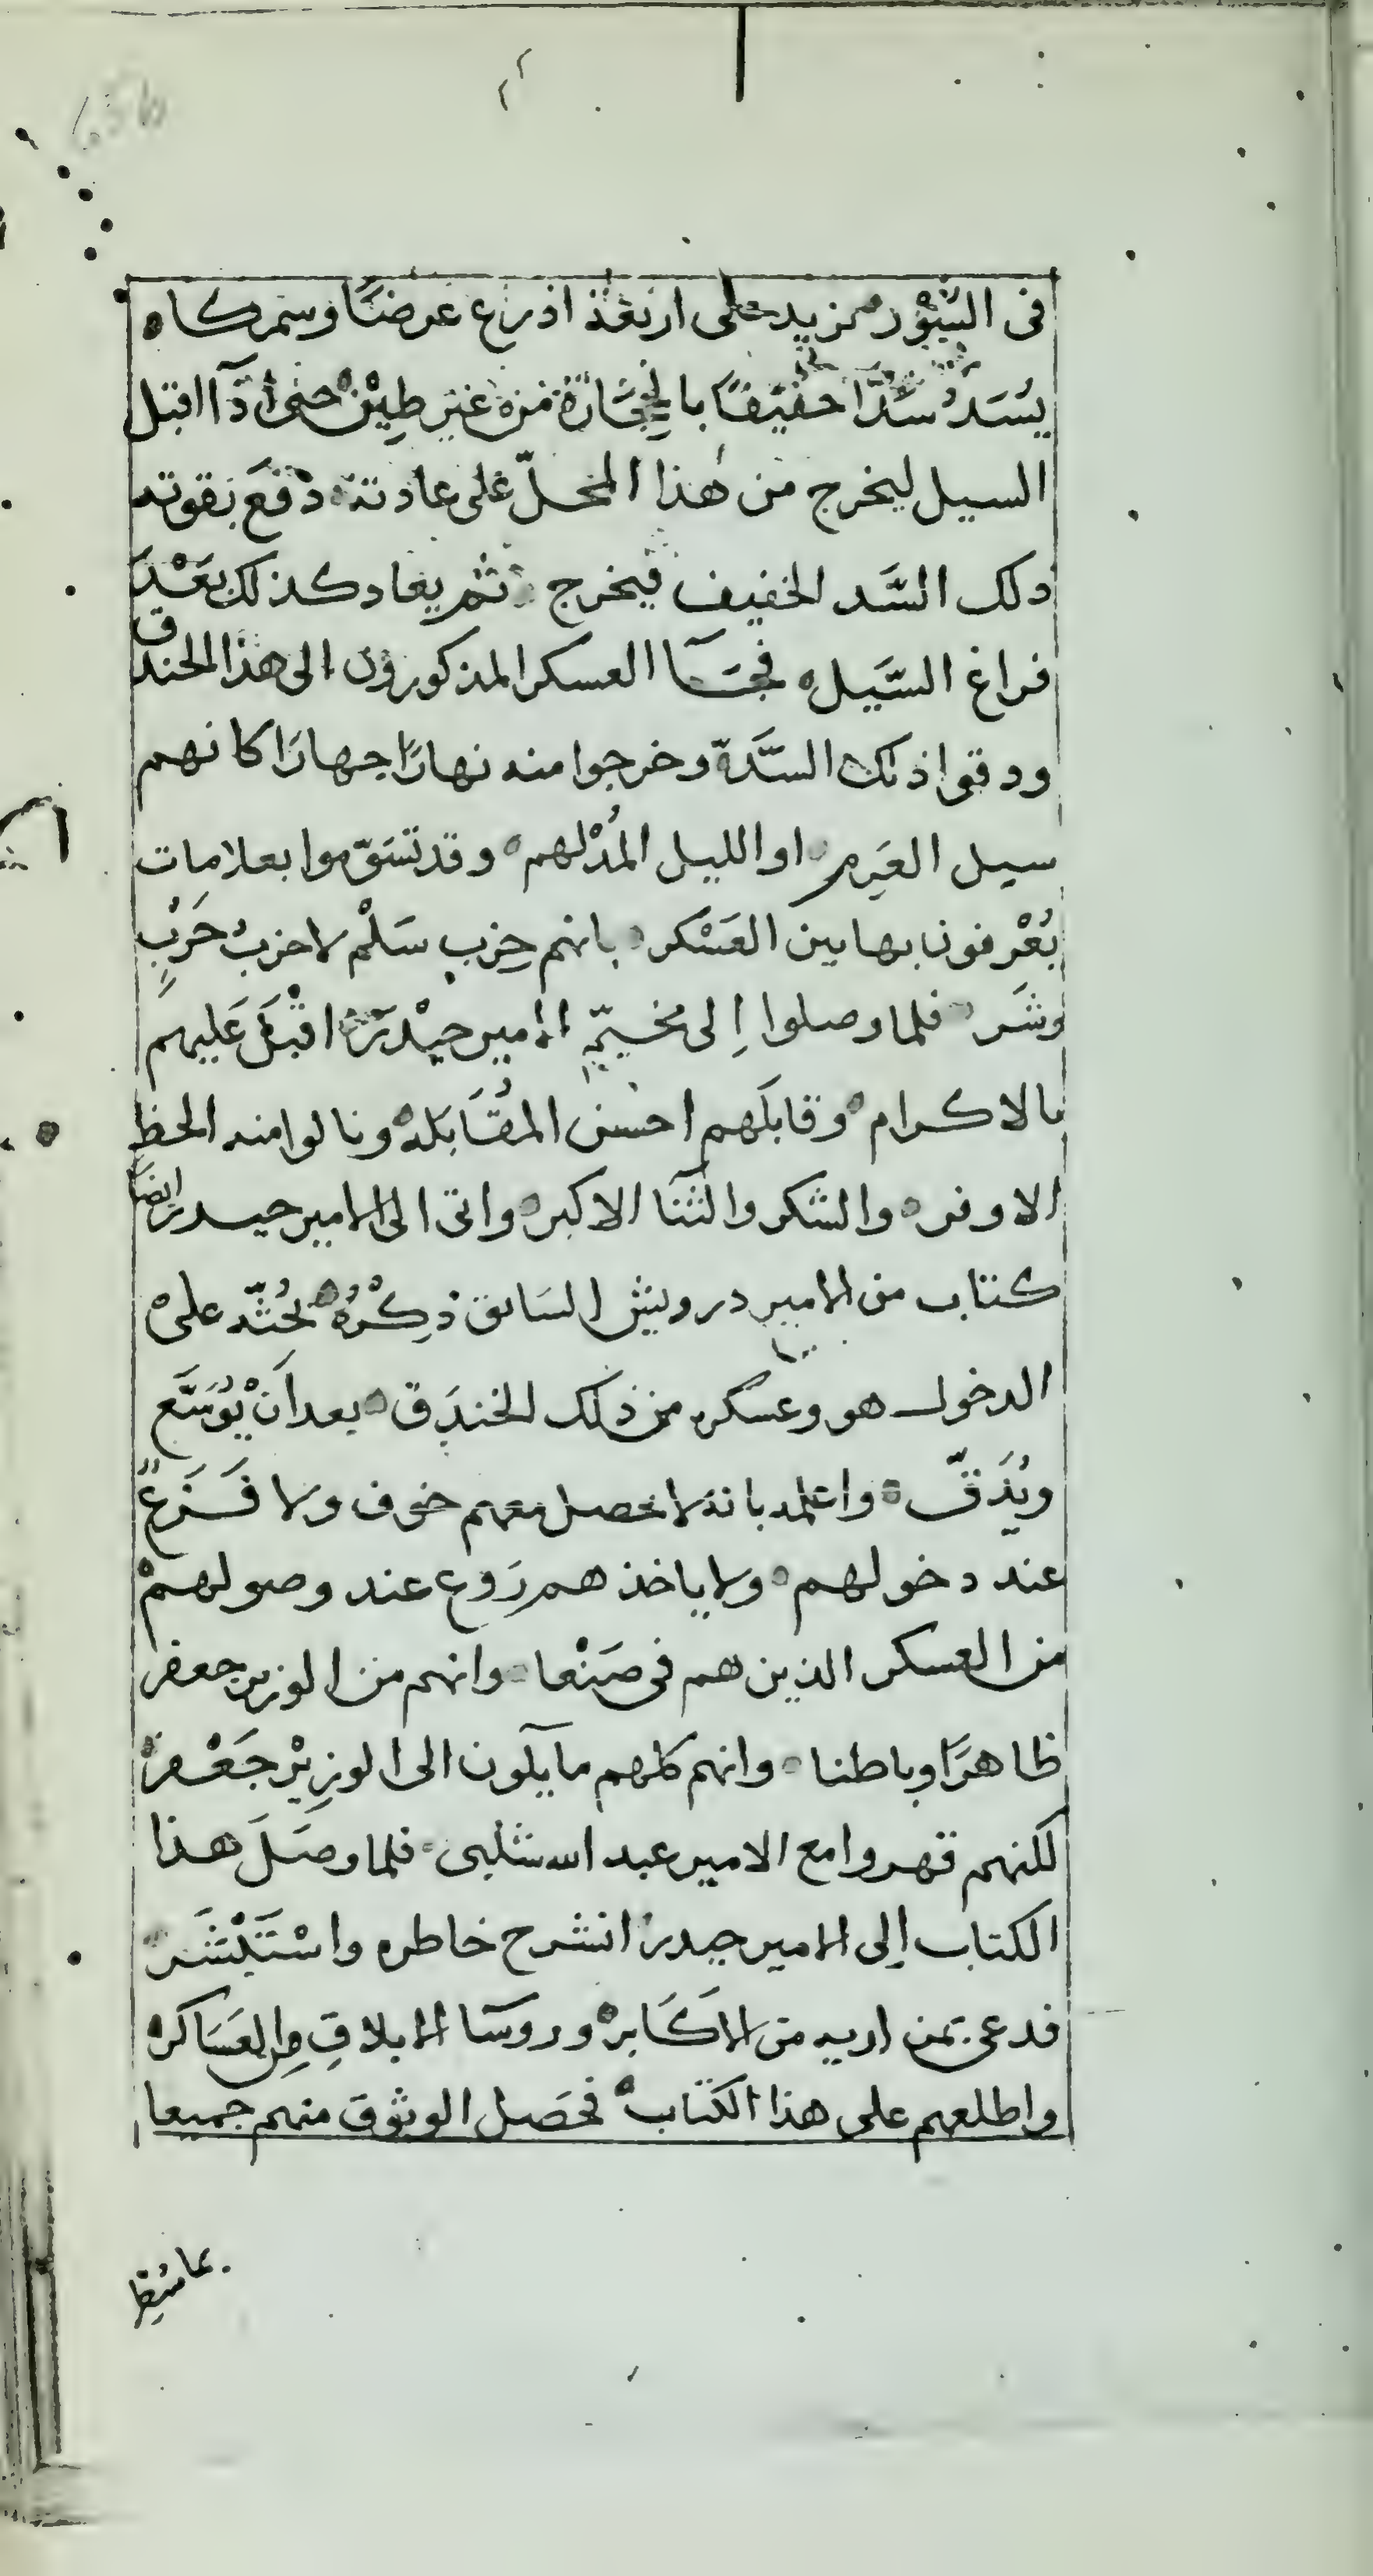 في السُّوْر مزيد على اربعة اذرع عرضًا وسمركاه
يُسَدُّ سَدًّا خفيفًا بالحِجَارة من غير طِيْن حتى اذآ اقبل
السيل ليخرج من هذا المحلّ على عادته دفعَ بقوته
ذلك السَّد الخفيف فيخرج ثم يعاد كذلك بعْدَ
فراغ السَّيل فجآ العسكر المذكورون الى هذا الخندق
ودقوا ذلك السَّدة وخرجوا منه نهارًا جهارًا كانهم
سيل العَرِم او الليل المُدْلهم وقد تسَوَّموا بعلامات
يُعْرفون بها بين العَسْكر بانهم حِزب سَلْم لا حزبُ حَرْبٍ
وشَر فلما وصلوا اِلى مخيّم الامير حيْدَرَ اقْبَل عَليهم
بالاكرام وقابلَهم احسن المُقَابَله ونالوا منه الحظ
الاوفر والشكر والثنآ الاكبر واتى الى الامير حيدر ايضًا
كتاب من الامير درويش السَابق ذِكْرُهُ يَحُثّه على
الدخول هو وعسكره من ذلك الخندَق بعد اَنْ يُوَسَّع
ويُدَقّ واعلمه بانه لا حصل معهم خوف ولا فَزَعٌ
عند دخولهم ولا ياخذهم رَوع عند وصولهمْ
من العسكر الذين هم في صَنْعا وانهم من الوزير جعفر
ظاهرًا وباطنا وانهم كلهم مآيلون الى الوزِيْر جَعْفر
لكنهم قهروا مع الامير عبد الله شلبى فلما وصَلَ هذا
الكتاب اِلى الامير حيدر انشرح خاطره واسْتَبْشَر
فدعى بمن لديه من الاكَابر وروسَآ الابلاقِ من العَسَاكر
واطلعهم على هذا الكتاب فحَصَل الوثوق منهم جميعا
بما سُطِر